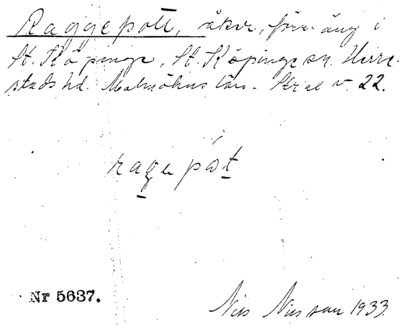 Raggepott, åker, förr äng i
St. Köpinge, St. Köpinge sn. Herre-
stads hd. Malmöhus län. v. 22.
ragepåt
Nr 5637.
Nils Nilsson 1933.